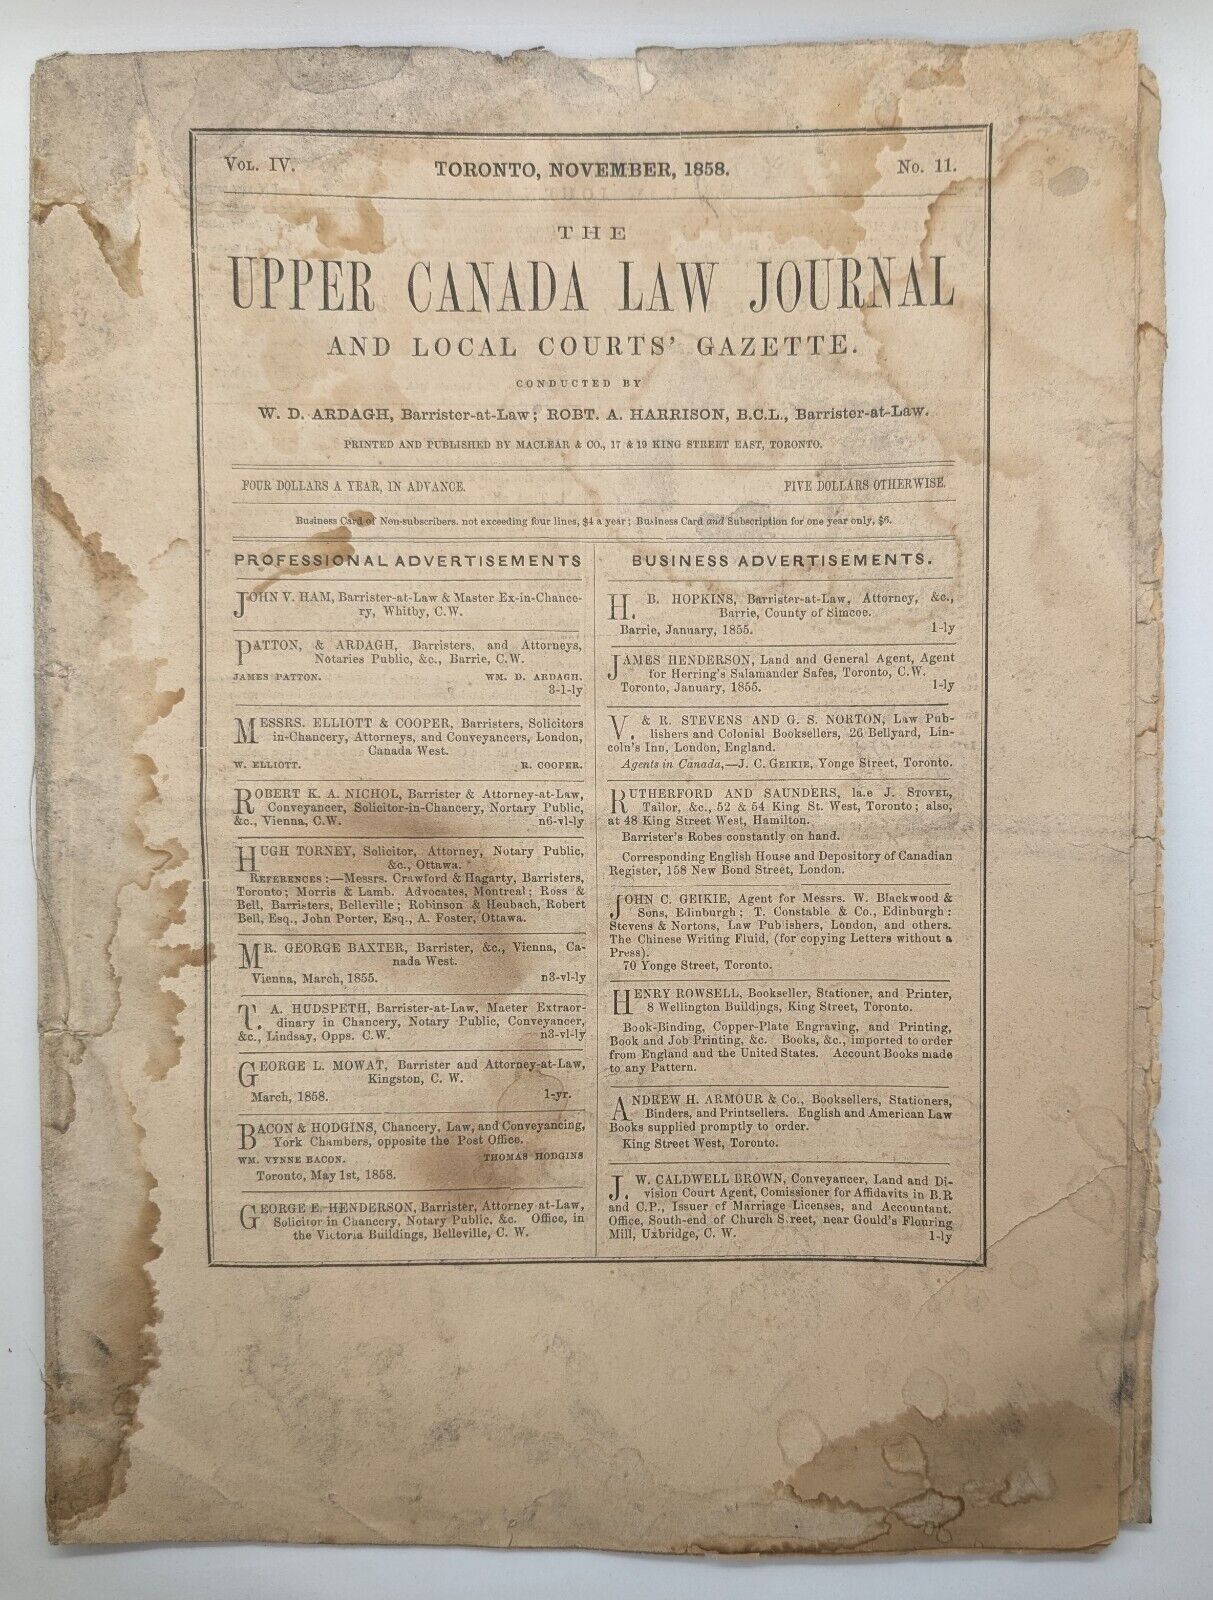 VOL. IV. TORONTO, NOVEMBER, 1858. No. 11.
THE
UPPER CANADA LAW JOURNAL
AND LOCAL COURTS' GAZETTE.
CONDUCTED BY
W. D. ARDAGH, Barrister-at-Law; ROBT. A. HARRISON, B.C.L., Barrister-at-Law.
PRINTED AND PUBLISHED BY MACLEAR & CO., 17 & 19 KING STREET EAST, TORONTO.
FOUR DOLLARS A YEAR, IN ADVANCE. FIVE DOLLARS OTHERWISE.
Business Card of Non-subscribers. not exceeding four lines, $4 a year; Business Card and Subscription for one year only, $6.
PROFESSIONAL ADVERTISEMENTS
JOHN V. HAM, Barrister-at-Law & Master Ex-in-Chance-
ry, Whitby, C.W.
PATTON, & ARDAGH, Barristers, and Attorneys,
Notaries Public, &c., Barrie, C.W.
JAMES PATTON. WM. D. ARDAGH.
3-1-ly
MESSRS. ELLIOTT & COOPER, Barristers, Solicitors
in-Chancery, Attorneys, and Conveyancers, London,
Canada West.
W. ELLIOTT. R. COOPER.
ROBERT K. A. NICHOL, Barrister & Attorney-at-Law,
Conveyancer, Solicitor-in-Chancery, Nortary Public,
&c., Vienna, C.W. n6-vl-ly
HUGH TORNEY, Solicitor, Attorney, Notary Public,
&c., Ottawa.
REFERENCES:—Messrs. Crawford & Hagarty, Barristers,
Toronto; Morris & Lamb. Advocates, Montreal; Ross &
Bell, Barristers, Belleville; Robinson & Heubach, Robert
Bell, Esq., John Porter, Esq., A. Foster, Ottawa.
MR. GEORGE BAXTER, Barrister, &c., Vienna, Ca-
nada West.
Vienna, March, 1855. n3-vl-ly
T. A. HUDSPETH, Barrister-at-Law, Master Extraor-
dinary in Chancery, Notary Public, Conveyancer,
&c., Lindsay, Opps. C.W. n3-vl-ly
GEORGE L. MOWAT, Barrister and Attorney-at-Law,
Kingston, C. W.
March, 1858. 1-yr.
BACON & HODGINS, Chancery, Law, and Conveyancing,
York Chambers, opposite the Post Office.
WM. VYNNE BACON. THOMAS HODGINS
Toronto, May 1st, 1858.
GEORGE E. HENDERSON, Barrister, Attorney-at-Law,
Solicitor in Chancery, Notary Public, &c. Office, in
the Victoria Buildings, Belleville, C. W.
BUSINESS ADVERTISEMENTS.
H. B. HOPKINS, Barrister-at-Law, Attorney, &c.,
Barrie, County of Simcoe.
Barrie, January, 1855. 1-ly
JAMES HENDERSON, Land and General Agent, Agent
for Herring's Salamander Safes, Toronto, C.W.
Toronto, January, 1855. 1-ly
V. & R. STEVENS AND G. S. NORTON, Law Pub-
lishers and Colonial Booksellers, 26 Bellyard, Lin-
coln's Inn, London, England.
Agents in Canada,—J. C. GEIKIE, Yonge Street, Toronto.
RUTHERFORD AND SAUNDERS, la.e J. STOVEL,
Tailor, &c., 52 & 54 King St. West, Toronto; also,
at 48 King Street West, Hamilton.
Barrister's Robes constantly on hand.
Corresponding English House and Depository of Canadian
Register, 158 New Bond Street, London.
JOHN C. GEIKIE, Agent for Messrs. W. Blackwood &
Sons, Edinburgh; T. Constable & Co., Edinburgh:
Stevens & Nortons, Law Publishers, London, and others.
The Chinese Writing Fluid, (for copying Letters without a
Press).
70 Yonge Street, Toronto.
HENRY ROWSELL, Bookseller, Stationer, and Printer,
8 Wellington Buildings, King Street, Toronto.
Book-Binding, Copper-Plate Engraving, and Printing,
Book and Job Printing, &c. Books, &c., imported to order
from England and the United States. Account Books made
to any Pattern.
ANDREW H. ARMOUR & Co., Booksellers, Stationers,
Binders, and Printsellers. English and American Law
Books supplied promptly to order.
King Street West, Toronto.
J. W. CALDWELL BROWN, Conveyancer, Land and Di-
vision Court Agent, Comissioner for Affidavits in B.R
and C.P., Issuer of Marriage Licenses, and Accountant.
Office, South-end of Church S.reet, near Gould's Flouring
Mill, Uxbridge, C. W. 1-ly